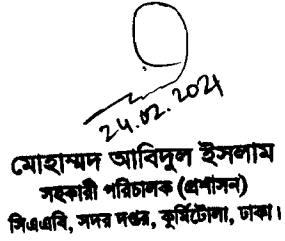 24.02.2021
মোহাম্মদ আবিদুল ইসলাম
সহকারী পরিচালক (প্রশাসন)
সিএএবি, সদর দপ্তর, কুর্মিটোলা, ঢাকা।